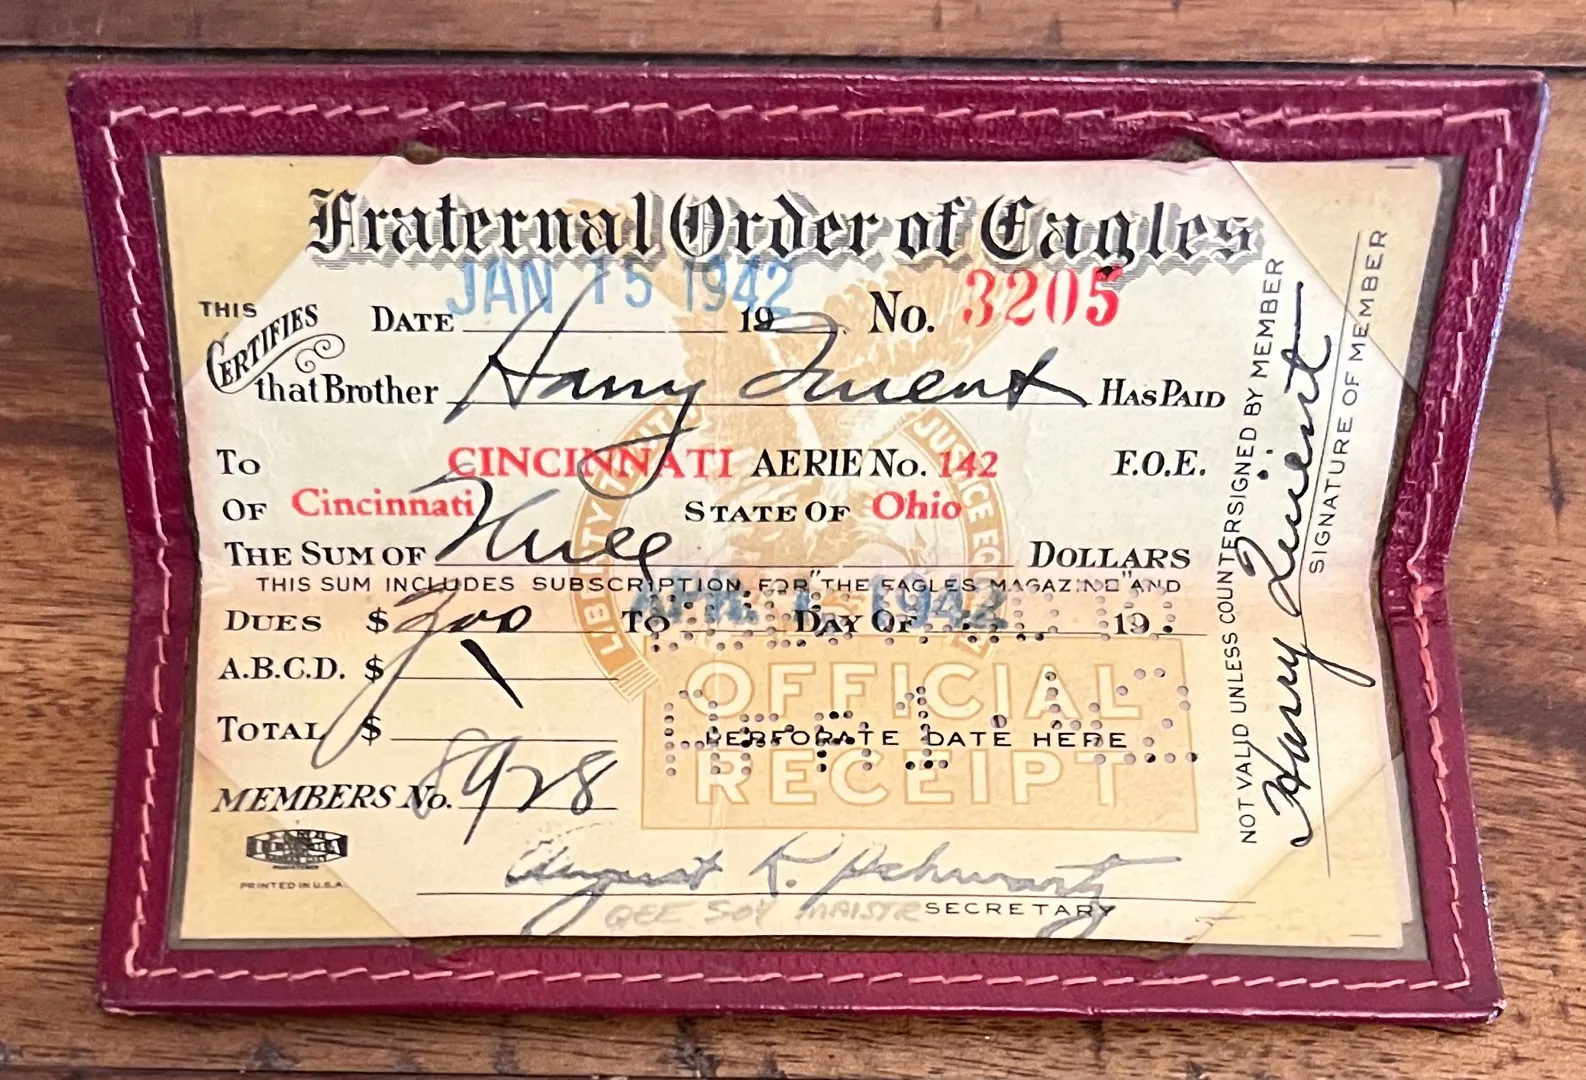 Fraternal Order of Eagles
JAN 15 1942
THIS CERTIFIES DATE 19 No. 3205
that Brother Harry HAS PAID
TO CINCINNATI AERIE No. 142 F.O.E.
OF Cincinnati STATE OF Ohio
THE SUM OF DOLLARS
THIS SUM INCLUDES SUBSCRIPTION FOR "THE EAGLES MAGAZINE" AND
DUES $ 300 TO APR. 1 1942 DAY OF 19
A.B.C.D. $
TOTAL $
MEMBERS No. 8928
LIBERTY TRUTH JUSTICE EQUALITY
OFFICIAL
PERFORATE DATE HERE
RECEIPT
PRINTED IN U.S.A.
August K. Schwartz
SECRETARY
NOT VALID UNLESS COUNTERSIGNED BY MEMBER
Harry
SIGNATURE OF MEMBER